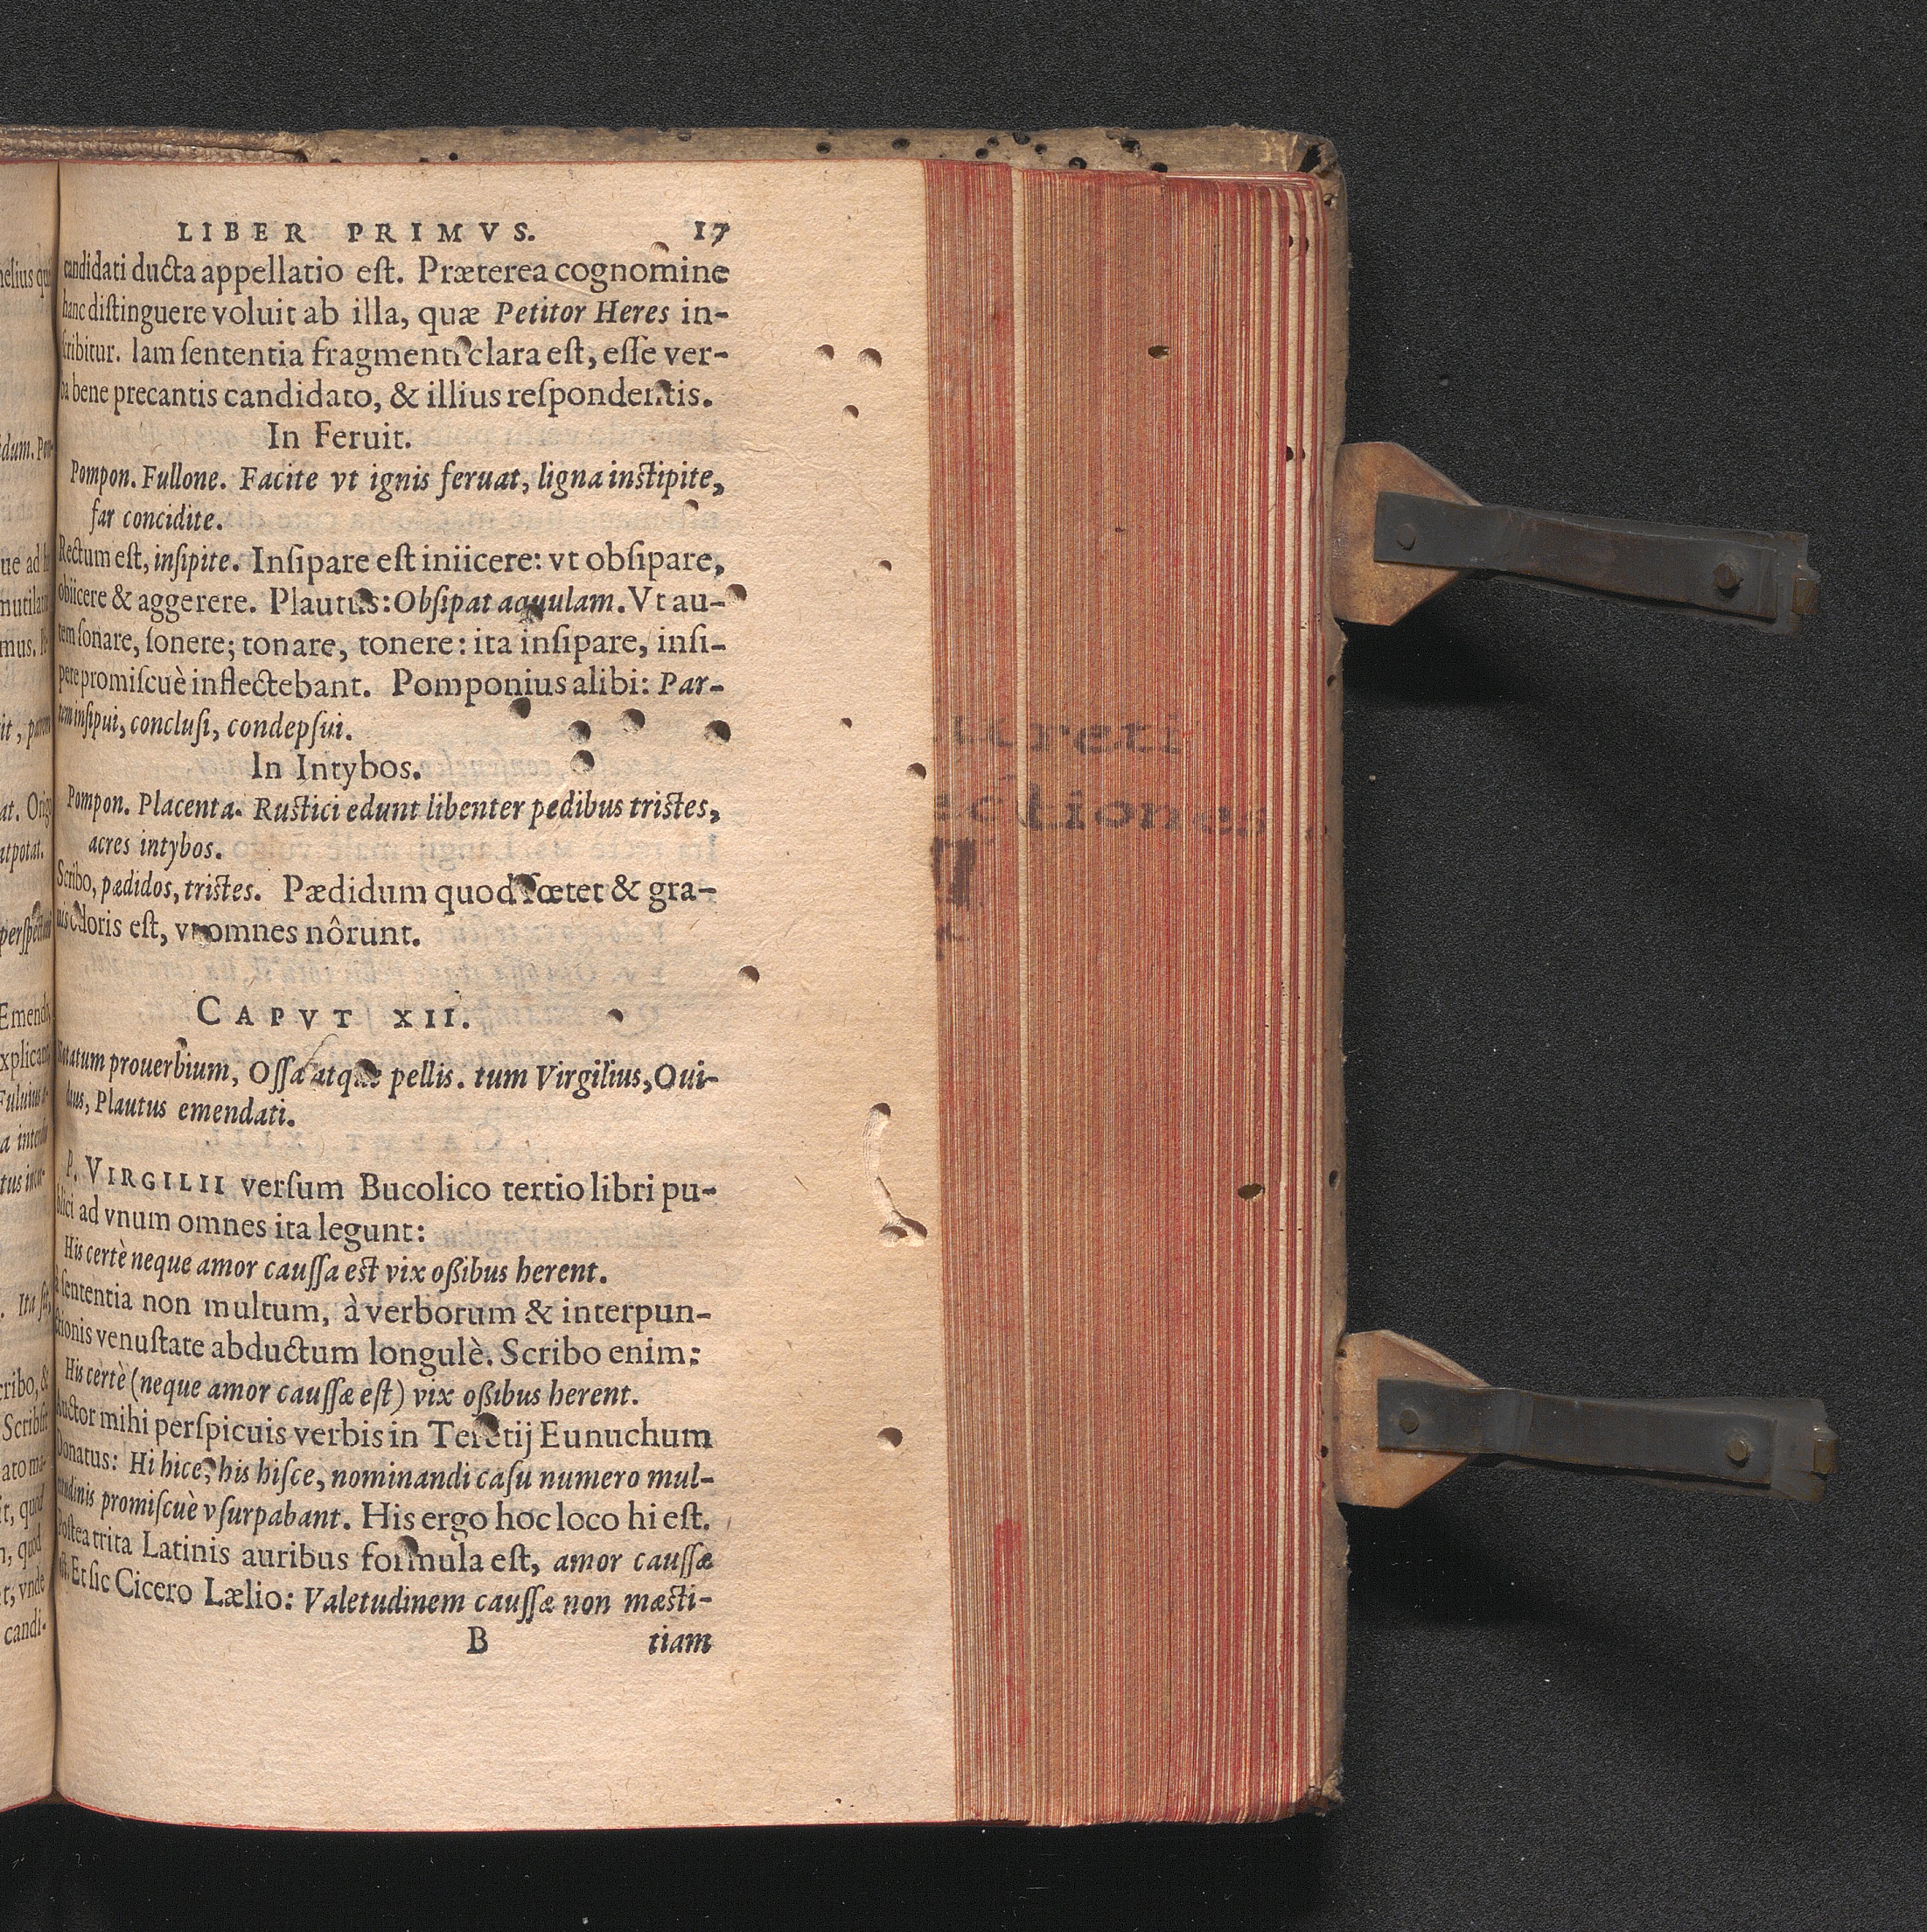 LIBER PRIMVS. 17
candidati ducta appellatio eſt. Præterea cognomine
hanc diſtinguere voluit ab illa, quæ Petitor Heres in-
ſcribitur. Iam ſententia fragmenti clara eſt, eſſe ver-
ba bene precantis candidato, & illius reſpondentis.
In Feruit.
Pompon. Fullone. Facite vt ignis feruat, ligna inſtipite,
far concidite.
Rectum eſt, inſipite. Inſipare eſt iniicere: vt obſipare,
obiicere & aggerere. Plautus: Obſipat aquulam. Vt au-
tem ſonare, ſonere; tonare, tonere: ita inſipare, inſi-
pere promiſcuè inflectebant. Pomponius alibi: Par-
tem inſipui, concluſi, condepſui.
In Intybos.
Pompon. Placenta. Ruſtici edunt libenter pedibus triſtes,
acres intybos.
Scribo, pædidos, triſtes. Pædidum quod fœtet & gra-
uis odoris eſt, vt omnes nôrunt.
CAPVT XII.
prouerbium, Oſſa atque pellis. tum Virgilius, Oui-
dius, Plautus emendati.
P. VIRGILII verſum Bucolico tertio libri pu-
blici ad vnum omnes ita legunt:
His certè neque amor cauſſa eſt vix oßibus herent.
à ſententia non multum, à verborum & interpun-
ctionis venuſtate abductum longulè. Scribo enim:
His certè (neque amor cauſſæ eſt) vix oßibus herent.
Auctor mihi perſpicuis verbis in Teretij Eunuchum
Donatus: Hi hice, his hiſce, nominandi caſu numero mul-
titudinis promiſcuè vſurpabant. His ergo hoc loco hi eſt.
Poſtea trita Latinis auribus formula eſt, amor cauſſæ
eſt. Et ſic Cicero Lælio: Valetudinem cauſſæ non mæſti-
B tiam